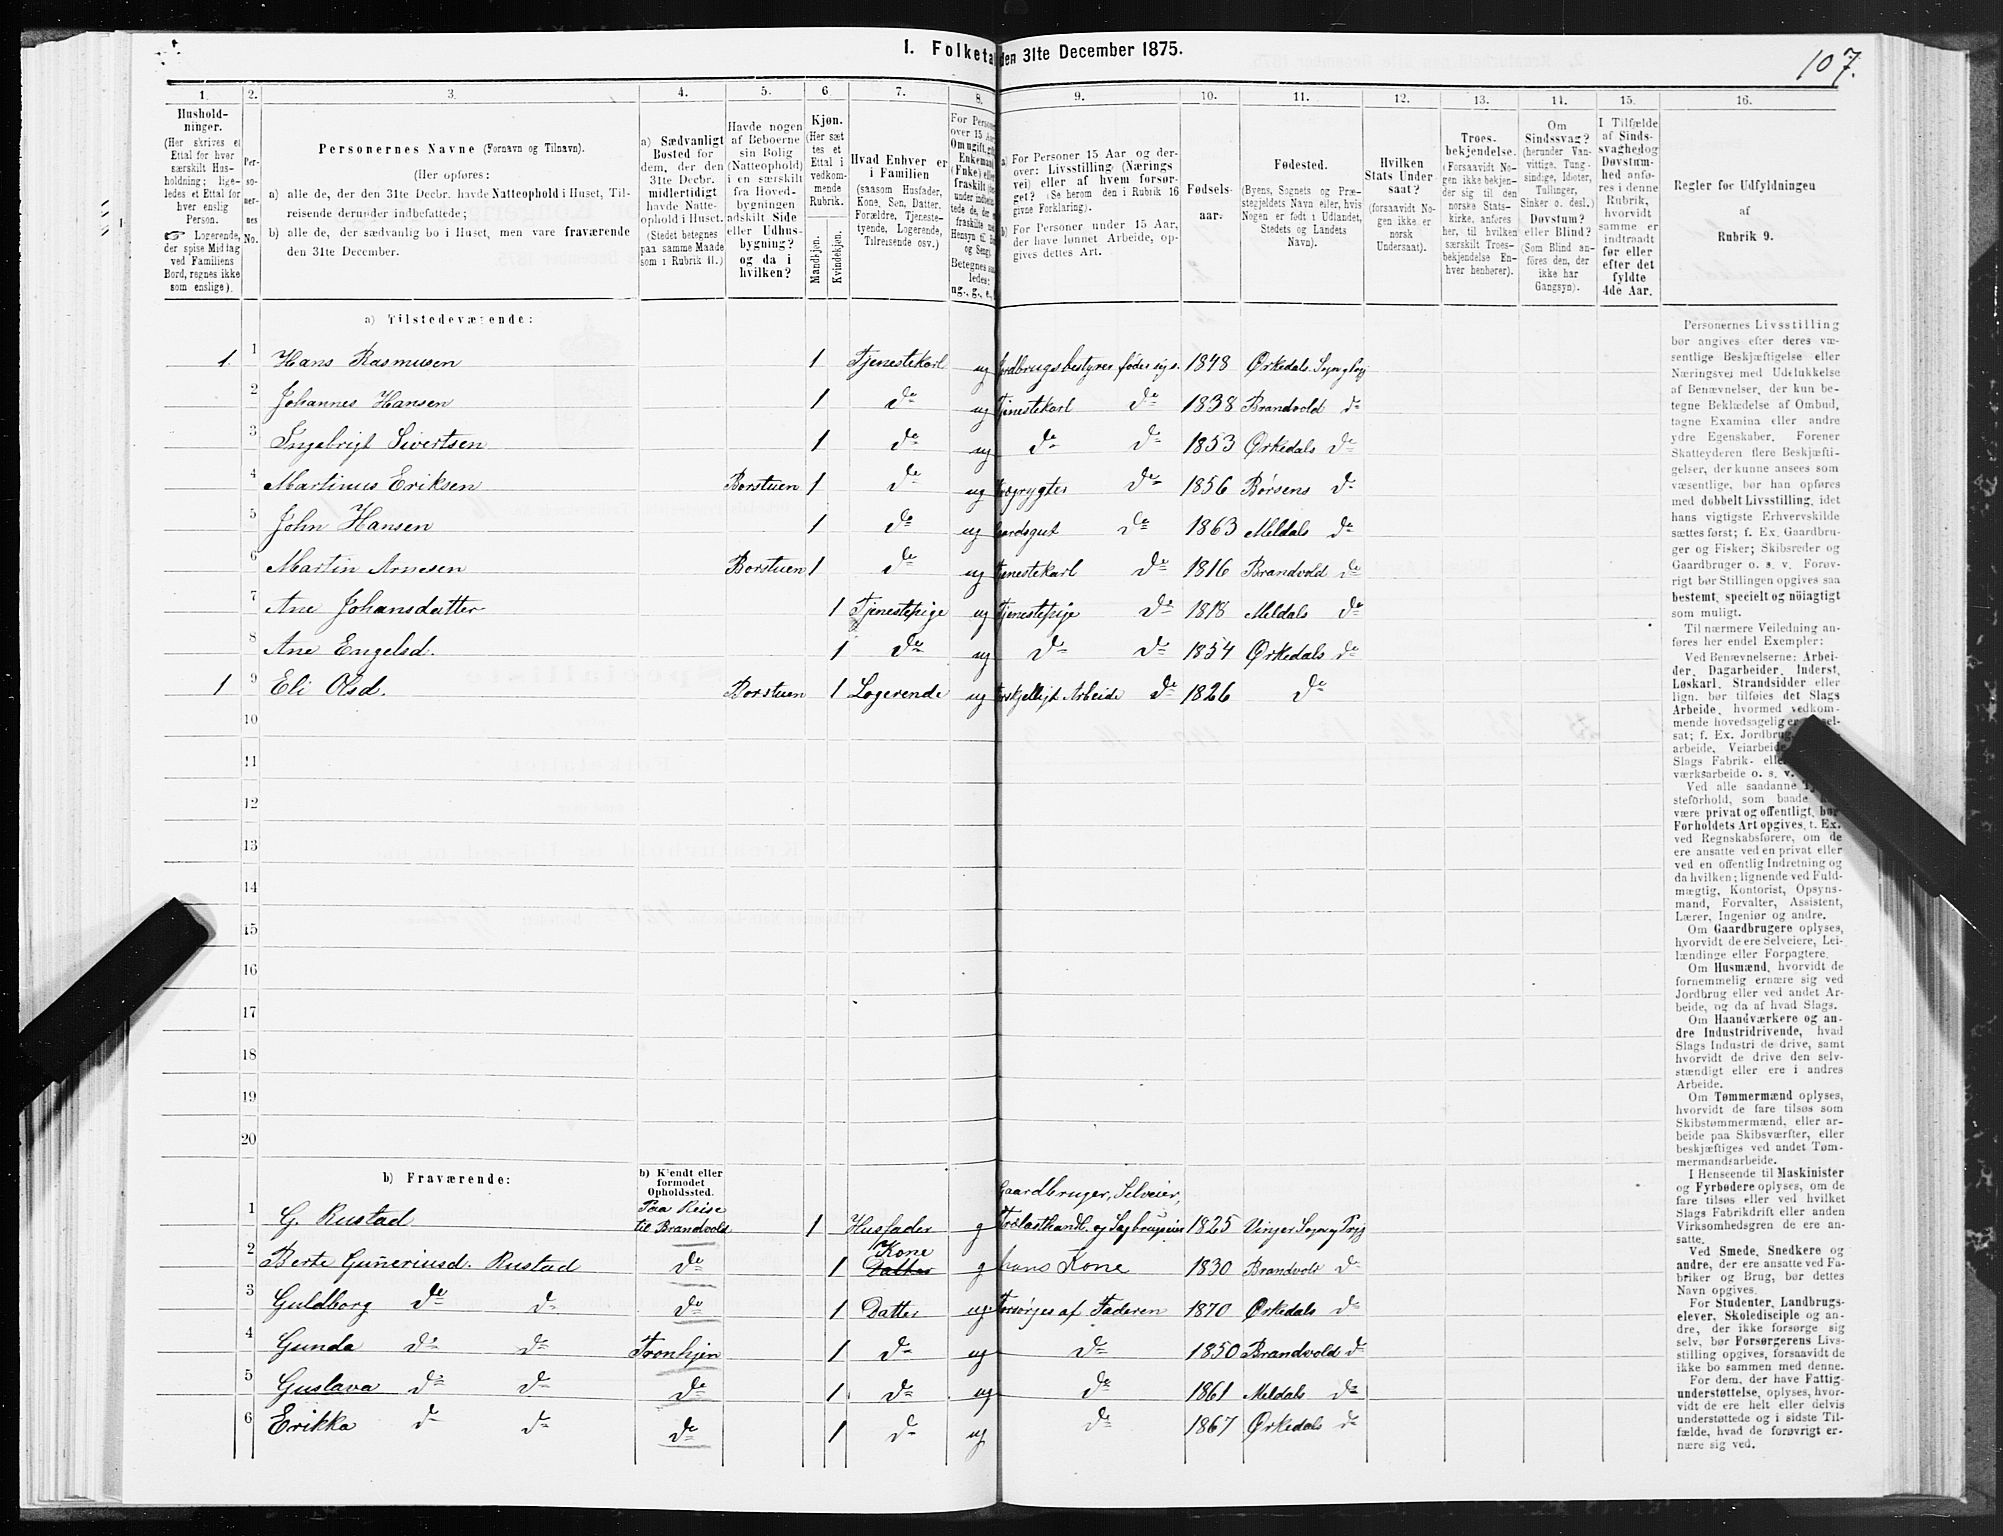 I. Folketal den 31te December 1875.
107.
1. 2. 3. 4. 5. 6. 7. 8. 9. 10. 11. 12. 13. 14. 15. 16.
Hushold-
ninger.
(Her skrives et
Ettal for hver
særskilt Hus-
holdning; lige-
ledes et Ettal for
hver enslig
Person.
☞ Logerende,
der spise Middag
ved Familiens
Bord, regnes ikke
som enslige).
Per-
so-
ner-
nes
No.
Personernes Navne (Fornavn og Tilnavn).
(Her opføres:
a) alle de, der den 31te Decbr. havde Natteophold i Huset, Til-
reisende derunder indbefattede;
b) alle de, der sædvanlig bo i Huset, men vare fraværende
den 31te December.
a) Sædvanligt
Bosted for
dem, der den
31te Decbr.
midlertidigt
havde Natte-
ophold i Huset.
(Stedet betegnes
paa samme Maade
som i Rubrik 11.)
Havde nogen
af Beboerne
sin Bolig
(Natteophold)
i en særskilt
fra Hoved-
bygningen
adskilt Side
eller Udhus-
bygning?
og da i
hvilken?
Kjøn.
(Her sæt
tes et
Ettal i
vedkom-
mende
Rubrik.
Mandkjøn.
Kvindekjøn.
Hvad Enhver er
i Familien
(saasom Husfader,
Kone, Søn, Datter,
Forældre, Tjeneste-
tyende, Logerende,
Tilreisende osv.)
For Person
over 15 Aar
Om ugift, gift,
Enkemand
(Enke) eller
fraskilt
Betegnes saa
ledes:
ug., g., e.,
a) For Personer 15 Aar og der-
over: Livsstilling (Nærings
vei) eller af hvem forsør-
get? (Se herom den i Rubrik 16
givne Forklaring).
b) For Personer under 15 Aar,
der have lønnet Arbeide, op-
gives dettes Art.
Fødsels-
aar.
Fødested.
(Byens, Sognets og Præ-
stegjeldets Navn eller, hvis
Nogen er født i Udlandet,
Stedets og Landets
Navn).
Hvilken
Stats Under
saat?
(forsaavidt No-
gen ikke er
norsk
Undersaat).
Troes-
bekjendelse.
(Forsaavidt No-
gen ikke bekjen-
der sig til den
norske Stats-
kirke, anføres
her, til hvilken
særskilt Troes-
bekjendelse En-
hver henhører).
Om
Sindssvag?
(herunder Van-
vittige, Tung-
sindige, Idioter,
Tullinger,
Sinker o. desl.)
Døvstum?
eller Blind?
(Som Blind an-
føres den, der
ikke har
Gangsyn).
I Tilfælde
af Sinds-
svaghed og
Døvstum-
hed anfø-
res i denne
Rubrik,
hvorvidt
samme er
indtraadt
før eller
efter det
fyldte
4de Aar.
Regler for Udfyldningen
af
Rubrik 9.
a) Tilstedeværende:
1. 1 Hans Rasmusen 1 Tjenestekarl ug Jordbrugsbestyrer føder sig s. 1848 Ørkedals Sogn og Prgj
2 Johannes Hansen 1 do ug Tjenestekarl do 1838 Brandvold do
3 Ingebrigt Sivertsen 1 do ug do do 1853 Ørkedals do
4 Martinus Eriksen Borstuen 1 do ug do 1856 Børsens do
5 John Hansen 1 do ug Gaardsgut do 1863 Meldals do
6 Martin Arnesen Borstuen 1 do ug Tjenestekarl do 1816 Brandvold do
7 Ane Johansdatter 1 Tjenestepige ug Tjenestepige do 1818 Meldals do
8 Ane Engelsd. 1 do ug do do 1854 Ørkedals do
1 9 Eli Olsd. Borstuen 1 Logerende ug Forskjelligt Arbeide do 1826 do
10
11
12
13
14
15
16
17
18
19
20
b) Fraværende:
b) Kjendt eller
formodet
Opholdssted.
1 G. Rustad Paa Reise til Brandvold 1 Husfader g Gaardbruger, Selveier, Trælasthandl. og Sagbrugseier 1825 Vinger Sogn og Prgj
2 Berte Guneriusd. Rustad do 1 Datter Kone g hans Kone 1830 Brandvold do
3 Guldborg do do do 1 Datter ug Forsørges af Faderen 1870 Ørkedals do
4 Gunda do do Tronhjen 1 do ug do 1850 Brandvold do
5 Gustava do do do 1 do ug do 1861 Meldals do
6 Erikka do do do 1 do ug do 1867 Ørkedals do
Personernes Livsstilling
bør angives efter deres væ-
sentlige Beskjæftigelse eller
Næringsvei med Udelukkelse
af Benævnelser, der kun be-
tegne Beklædelse af Ombud,
tagne Examina eller andre
ydre Egenskaber. Forener
Skatteyderen flere Beskjæfti-
gelser, der kunne ansees som
væsentlige, bør han opføres
med dobbelt Livsstilling, idet
hans vigtigste Erhvervskilde
sættes først; f. Ex. Gaardbru-
ger og Fisker; Skibsreder og
Gaardbruger o. s. v. Forøv-
rigt bør Stillingen opgives saa
bestemt, specielt og nöiagtigt
som muligt.
Til nærmere Veiledning an-
føres her endel Exempler:
Ved Benævnelserne: Arbei-
der, Dagarbeider, Inderst,
Løskarl, Strandsidder eller
lign. bør tilføies det Slags
Arbeide, hvormed vedkom-
mende hovedsagelig er
sat; f. Ex. Jordbrug,
arbeide, Veiarbeide
Slags Fabrik- eller
værksarbeide o. s. v.
Ved alle saadanne
steforhold, som baade
være privat og offentligt, bør
Forholdets Art opgives, t. Ex.
ved Regnskabsførere, om de
ere ansatte ved en privat eller
ved en offentlig Indretning og
da hvilken; lignende ved Fuld-
mægtig, Kontorist, Opsyns-
mand, Forvalter, Assistent,
Lærer, Ingeniør og andre.
Om Gaardbrugere oplyses,
hvorvidt de ere Selveiere, Lei-
lændinge eller Forpagtere.
Om Husmænd, hvorvidt de
fornemmelig ernære sig ved
Jordbrug eller ved andet Ar-
beide, og da af hvad Slags.
Om Haandværkere og an-
dre Industridrivende, hvad
Slags Industri de drive, samt
hvorvidt de drive den selv-
stændigt eller ere i andres
Arbeide.
Om Tømmermænd oplyses,
hvorvidt de fare tilsøs som
Skibstømmermænd, eller ar-
beide paa Skibsværfter, eller
beskjæftiges ved andet Tøm-
mermandsarbeide.
I Henseende til Maskinister
og Fyrbødere oplyses, om de
fare tilsøs eller ved hvilket
Slags Fabrikdrift eller anden
Virksomhedsgren de ere an-
satte.
Ved Smede, Snedkere og
andre, der ere ansatte ved Fa-
briker og Brug, bør dettes
Navn opgives.
For Studenter, Landbrugs-
elever, Skoledisciple og an-
dre, der ikke forsørge sig
selv, bør Forsørgerens Livs-
stilling opgives, forsaavidt de
ikke bo sammen med denne.
For dem, der have Fattig-
understøttelse, oplyses, hvor-
vidt de ere helt eller delvis
understøttede og i sidste Til-
fælde, hvad de forøvrigt er-
nære sig ved.